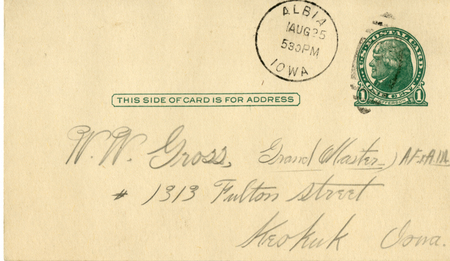 ALBIA
AUG 25
530PM
IOWA
U.S. POSTAL CARD
1 ONE CENT 1
JEFFERSON
THIS SIDE OF CARD IS FOR ADDRESS
W. W. Gross, Grand Master_) AF&AM
# 1313 Fulton Street
Keokuk Iowa.